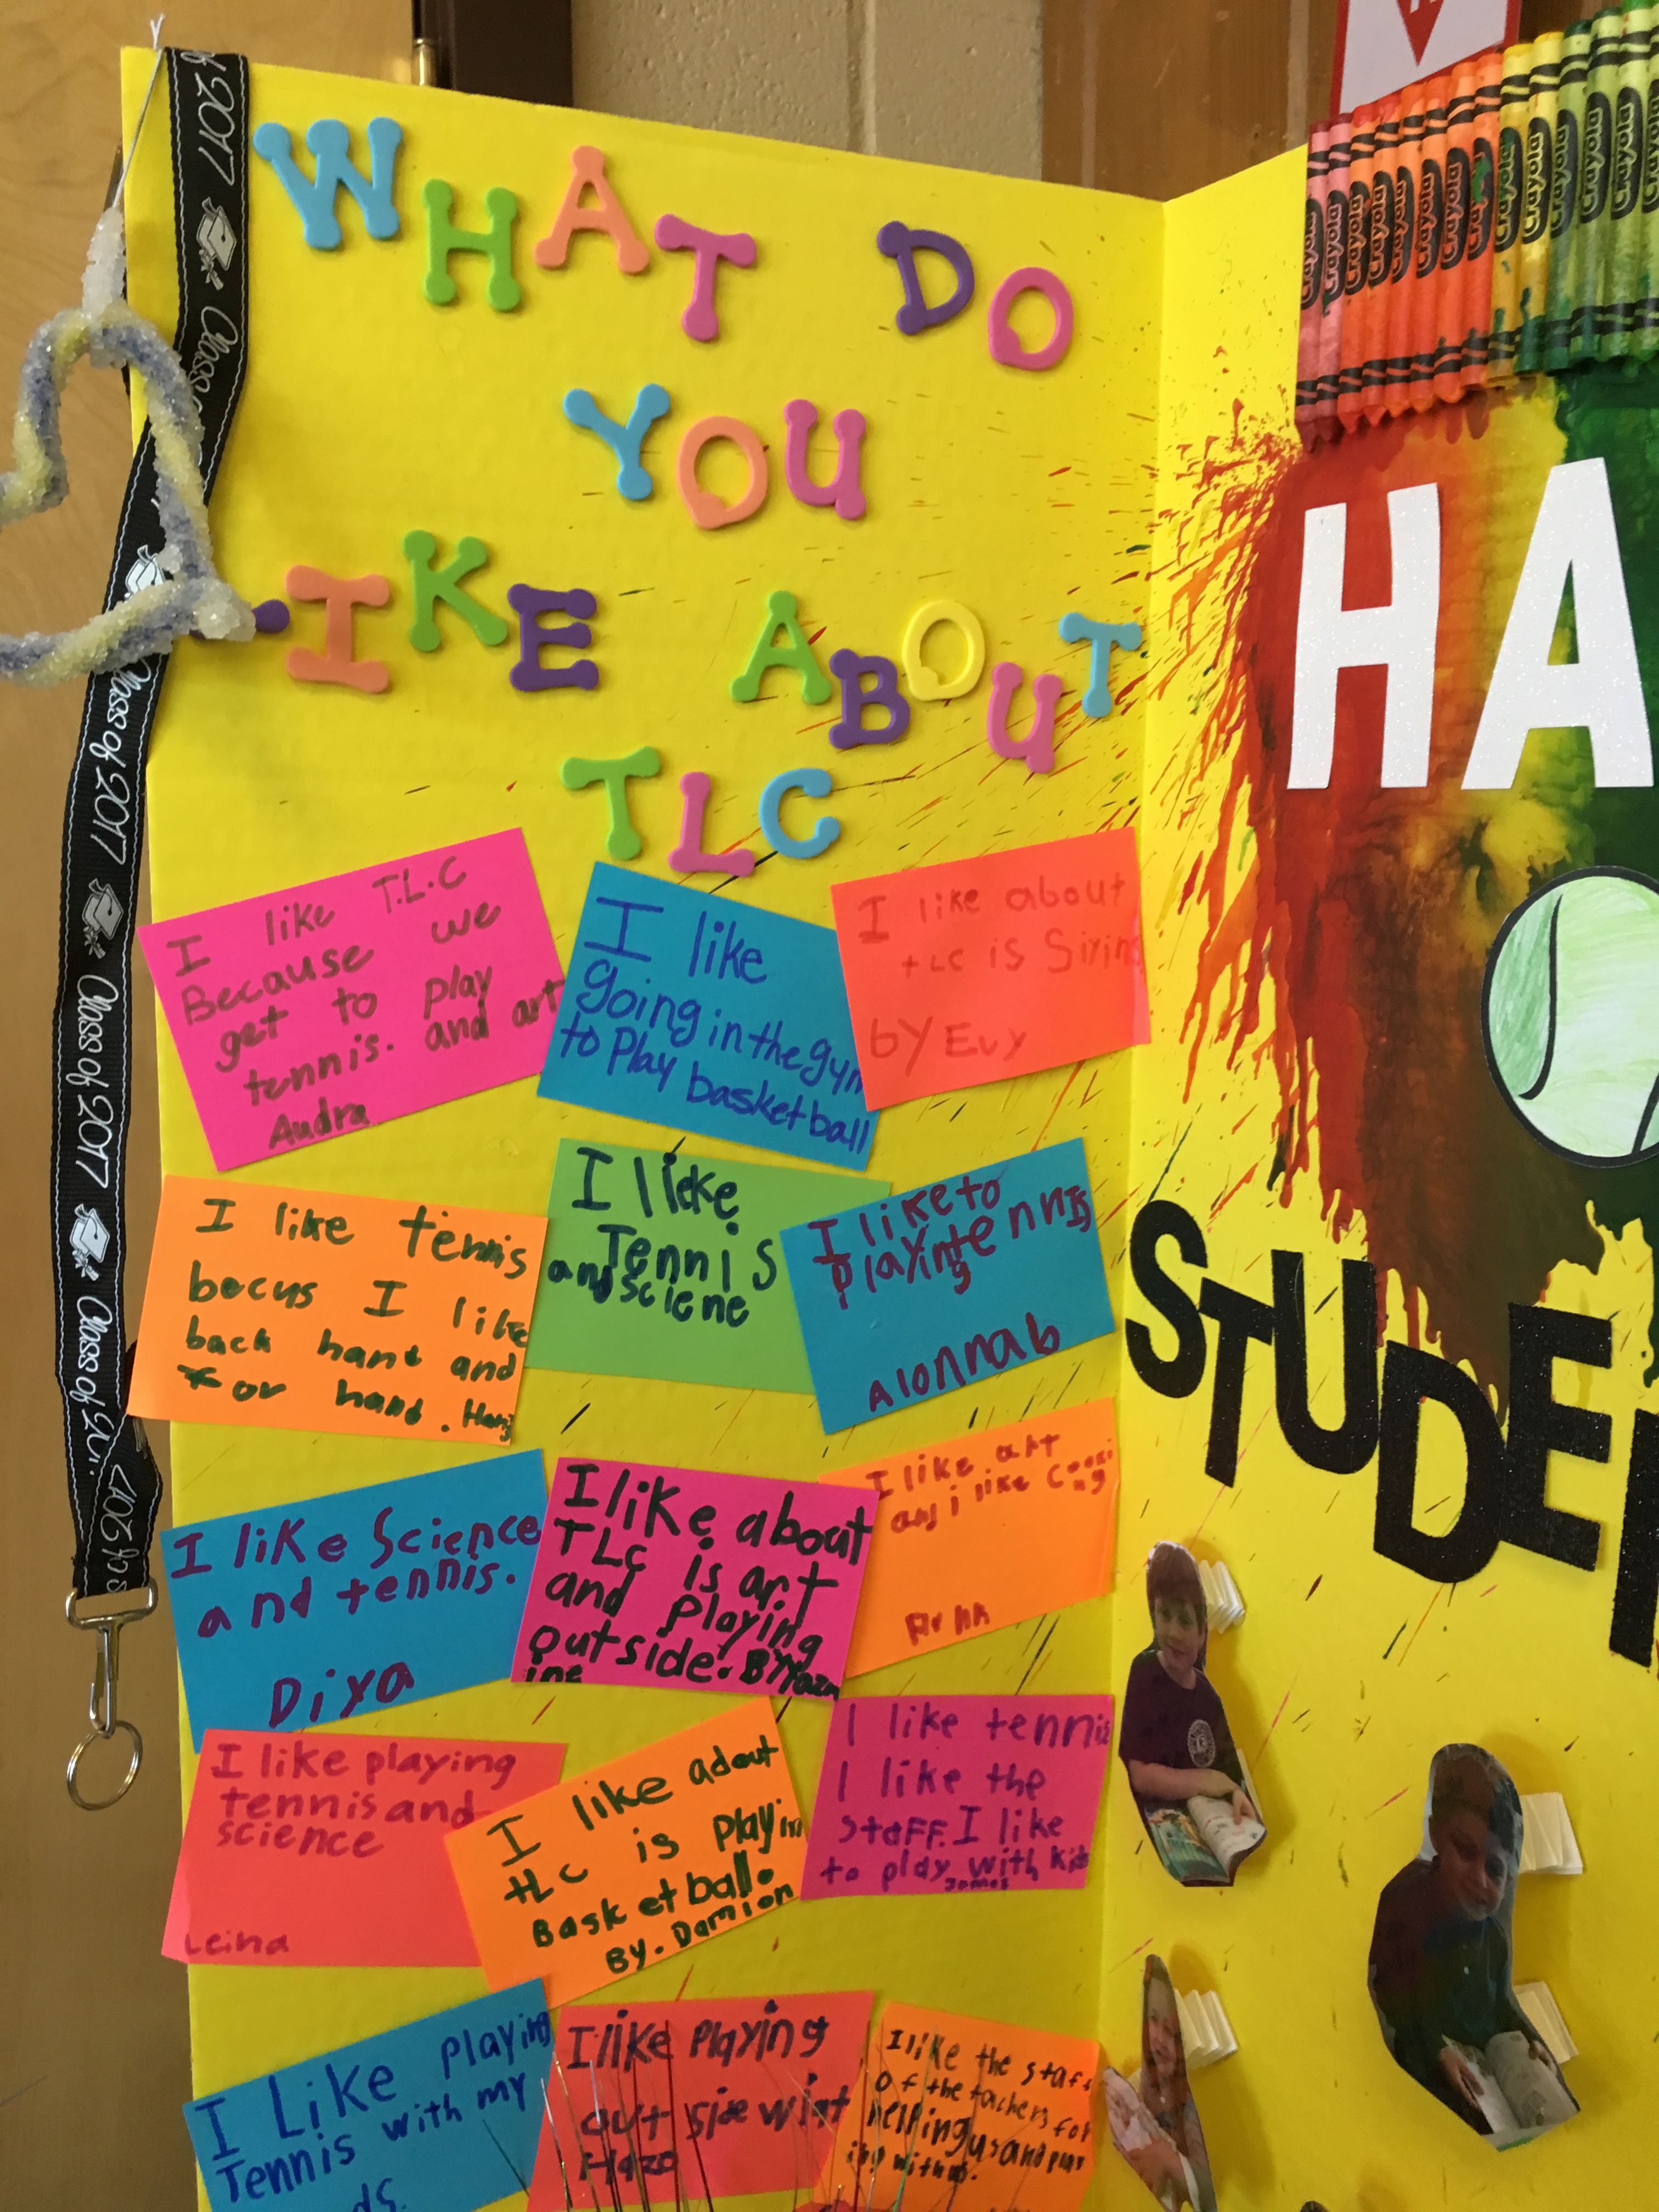 WHAT DO
YOU
IKE ABOUT
TLC
I like T.L.C
Because we
get to play
tennis. and art
Audra
I like
going in the gym
to Play basketball
I like about
tLC is
by Evy
I like tennis
becus I like
back hand and
For hand.
I like
Tennis
and sciene
I like to
playing tennis
Alonnab
I like Science
and tennis.
Diya
I like about
TLc is art
and playing
outside. BY
I like art
and i like
I like playing
tennis and
science
Leina
I like adout
tLc is playin
Basketball.
By. Damion
I like tennis
I like the
staFF. I like
to play with kids
James
I Like playing
Tennis with my
ds.
I like Playing
out side
I like the staff
of the tachers for
helping us and
ing with us.
2017
Class of 2017
Class of 2017
Class of 2017
Crayola
Crayola
Crayola
Crayola
Crayola
Crayola
Crayola
Crayola
Crayola
Crayola
Crayola
Crayola
HA
STUDE